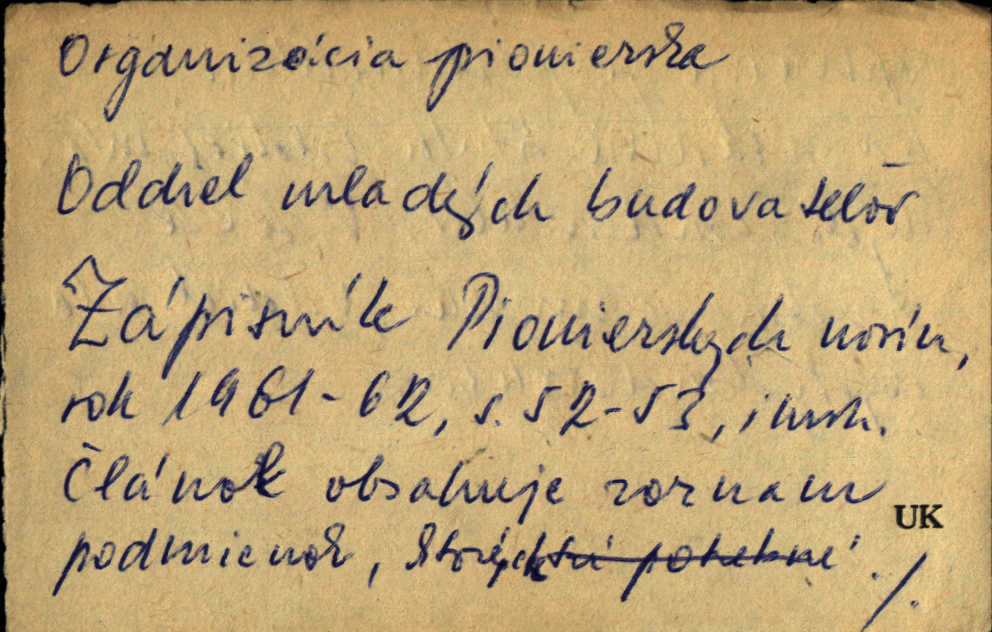 Organizácia pionierska
Oddiel mladých budovateľov
Zápisník Pionierskych novín,
rok 1961-62, s. 52-53, ilustr.
Článok obsahuje zoznam
UK
podmienok, ktorých sú potrebné ./.